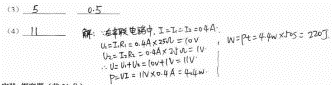 (3) 5 0.5
(4) 11 解: 在串联电路中, I=I₁=I₂=0.4A.
U₁=I₁R₁=0.4A×25Ω=10V
U₂=I₂R₂=0.4A×2.5Ω=1V
∴U=U₁+U₂=10V+1V=11V
P=UI=11V×0.4A=4.4W.
W=Pt=4.4W×50s=220J.